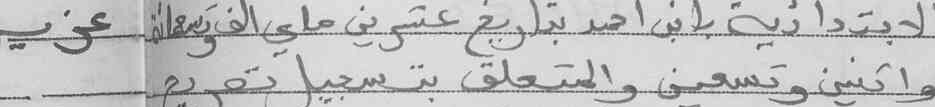 الابتدائية بابن احمد بتاريخ عشرين ماي الف وتسعمائة عزب
واثنين وتسعين والمتعلق بتسجيل تصريح